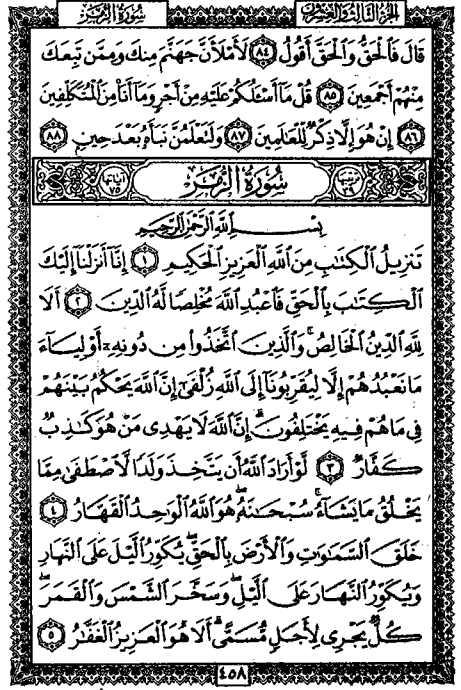 سُورَةُ الزُّمَرِ
الجُزْءُ الثَّالِثُ وَالعِشْرُونَ
قَالَ فَالْحَقُّ وَالْحَقَّ أَقُولُ ٨٤ لَأَمْلَأَنَّ جَهَنَّمَ مِنكَ وَمِمَّن تَبِعَكَ
مِنْهُمْ أَجْمَعِينَ ٨٥ قُلْ مَا أَسْـَٔلُكُمْ عَلَيْهِ مِنْ أَجْرٍ وَمَا أَنَا۠ مِنَ الْمُتَكَلِّفِينَ
٨٦ إِنْ هُوَ إِلَّا ذِكْرٌ لِّلْعَالَمِينَ ٨٧ وَلَتَعْلَمُنَّ نَبَأَهُ بَعْدَ حِينٍ ٨٨
آياتها ٧٥
سُورَةُ الزُّمَرِ
ترتيبها ٣٩
بِسْمِ اللَّهِ الرَّحْمَٰنِ الرَّحِيمِ
تَنزِيلُ الْكِتَٰبِ مِنَ اللَّهِ الْعَزِيزِ الْحَكِيمِ ١ إِنَّا أَنزَلْنَا إِلَيْكَ
الْكِتَٰبَ بِالْحَقِّ فَاعْبُدِ اللَّهَ مُخْلِصًا لَّهُ الدِّينَ ٢ أَلَا
لِلَّهِ الدِّينُ الْخَالِصُ ۚ وَالَّذِينَ اتَّخَذُوا مِن دُونِهِۦ أَوْلِيَاءَ
مَا نَعْبُدُهُمْ إِلَّا لِيُقَرِّبُونَا إِلَى اللَّهِ زُلْفَىٰ إِنَّ اللَّهَ يَحْكُمُ بَيْنَهُمْ
فِي مَا هُمْ فِيهِ يَخْتَلِفُونَ ۗ إِنَّ اللَّهَ لَا يَهْدِي مَنْ هُوَ كَٰذِبٌ
كَفَّارٌ ٣ لَّوْ أَرَادَ اللَّهُ أَن يَتَّخِذَ وَلَدًا لَّاصْطَفَىٰ مِمَّا
يَخْلُقُ مَا يَشَاءُ ۚ سُبْحَٰنَهُ ۖ هُوَ اللَّهُ الْوَٰحِدُ الْقَهَّارُ ٤
خَلَقَ السَّمَٰوَٰتِ وَالْأَرْضَ بِالْحَقِّ ۖ يُكَوِّرُ اللَّيْلَ عَلَى النَّهَارِ
وَيُكَوِّرُ النَّهَارَ عَلَى اللَّيْلِ ۖ وَسَخَّرَ الشَّمْسَ وَالْقَمَرَ ۖ
كُلٌّ يَجْرِي لِأَجَلٍ مُّسَمًّى ۗ أَلَا هُوَ الْعَزِيزُ الْغَفَّٰرُ ٥
٤٥٨